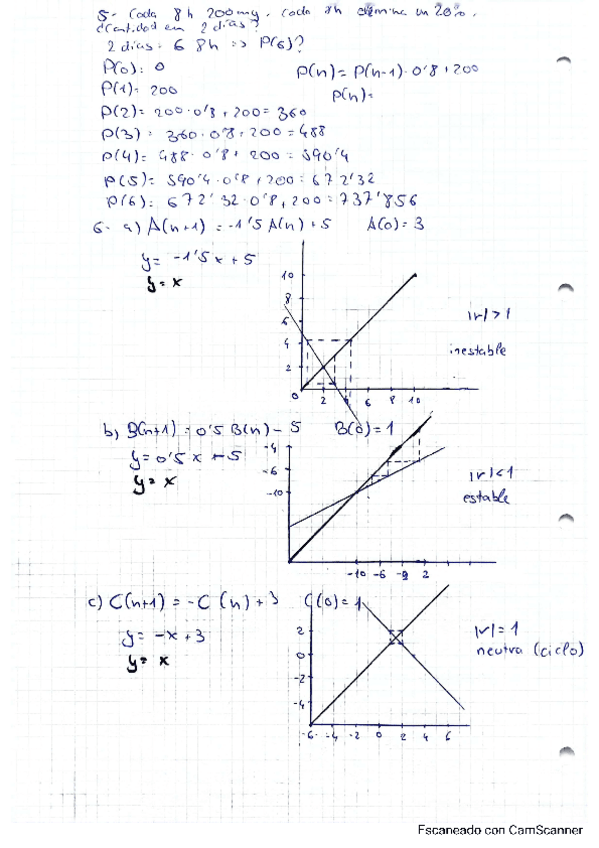 5- Cada 8h 200mg. Cada 8h elimina un 20%.
¿Cantidad en 2 días?
2 días = 6 8h => P(6)?
P(0) = 0 P(n) = P(n-1)·0'8 + 200
P(1) = 200 P(n) =
P(2) = 200·0'8 + 200 = 360
P(3) = 360·0'8 + 200 = 488
P(4) = 488·0'8 + 200 = 590'4
P(5) = 590'4·0'8 + 200 = 672'32
P(6) = 672'32·0'8 + 200 = 737'856
6- a) A(n+1) = -1'5A(n) + 5 A(0) = 3
y = -1'5x + 5
y = x
10
8
6
4
2
0 2 4 6 8 10
|r| > 1
inestable
b) B(n+1) = 0'5 B(n) - 5 B(0) = 1
y = 0'5x + 5
y = x
-4
-6
-10
-10 -6 -9 2
|r| < 1
estable
c) C(n+1) = -C(n) + 3 C(0) = 1
y = -x + 3
y = x
2
0
-2
-4
-6 -4 -2 0 2 4 6
|r| = 1
neutra (ciclo)
Escaneado con CamScanner